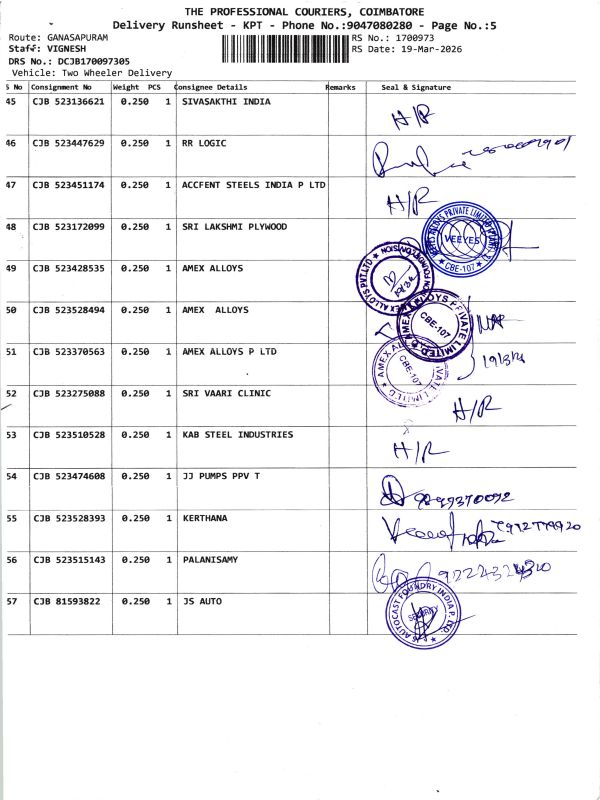 THE PROFESSIONAL COURIERS, COIMBATORE
Delivery Runsheet - KPT - Phone No.:9047080280 - Page No.:5
Route: GANASAPURAM RS No.: 1700973
Staff: VIGNESH RS Date: 19-Mar-2026
DRS No.: DCJB170097305
Vehicle: Two Wheeler Delivery
S No Consignment No Weight PCS Consignee Details Remarks Seal & Signature
45 CJB 523136621 0.250 1 SIVASAKTHI INDIA H/R
46 CJB 523447629 0.250 1 RR LOGIC
47 CJB 523451174 0.250 1 ACCFENT STEELS INDIA P LTD H/R
48 CJB 523172099 0.250 1 SRI LAKSHMI PLYWOOD VEEYES CBE-107
49 CJB 523428535 0.250 1 AMEX ALLOYS
50 CJB 523528494 0.250 1 AMEX ALLOYS AMEX ALLOYS PRIVATE LIMITED CBE-107
51 CJB 523370563 0.250 1 AMEX ALLOYS P LTD CBE-107
52 CJB 523275088 0.250 1 SRI VAARI CLINIC H/R
53 CJB 523510528 0.250 1 KAB STEEL INDUSTRIES H/R
54 CJB 523474608 0.250 1 JJ PUMPS PPV T
55 CJB 523528393 0.250 1 KERTHANA
56 CJB 523515143 0.250 1 PALANISAMY
57 CJB 81593822 0.250 1 JS AUTO JS AUTOCAST FOUNDRY INDIA P. LTD. SECURITY